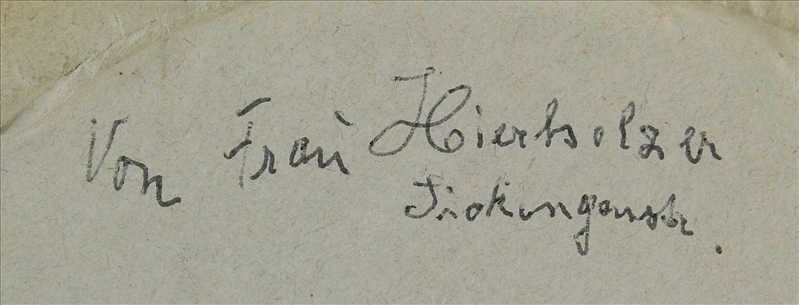 Von Frau Hierholzer
Sickingenstr.